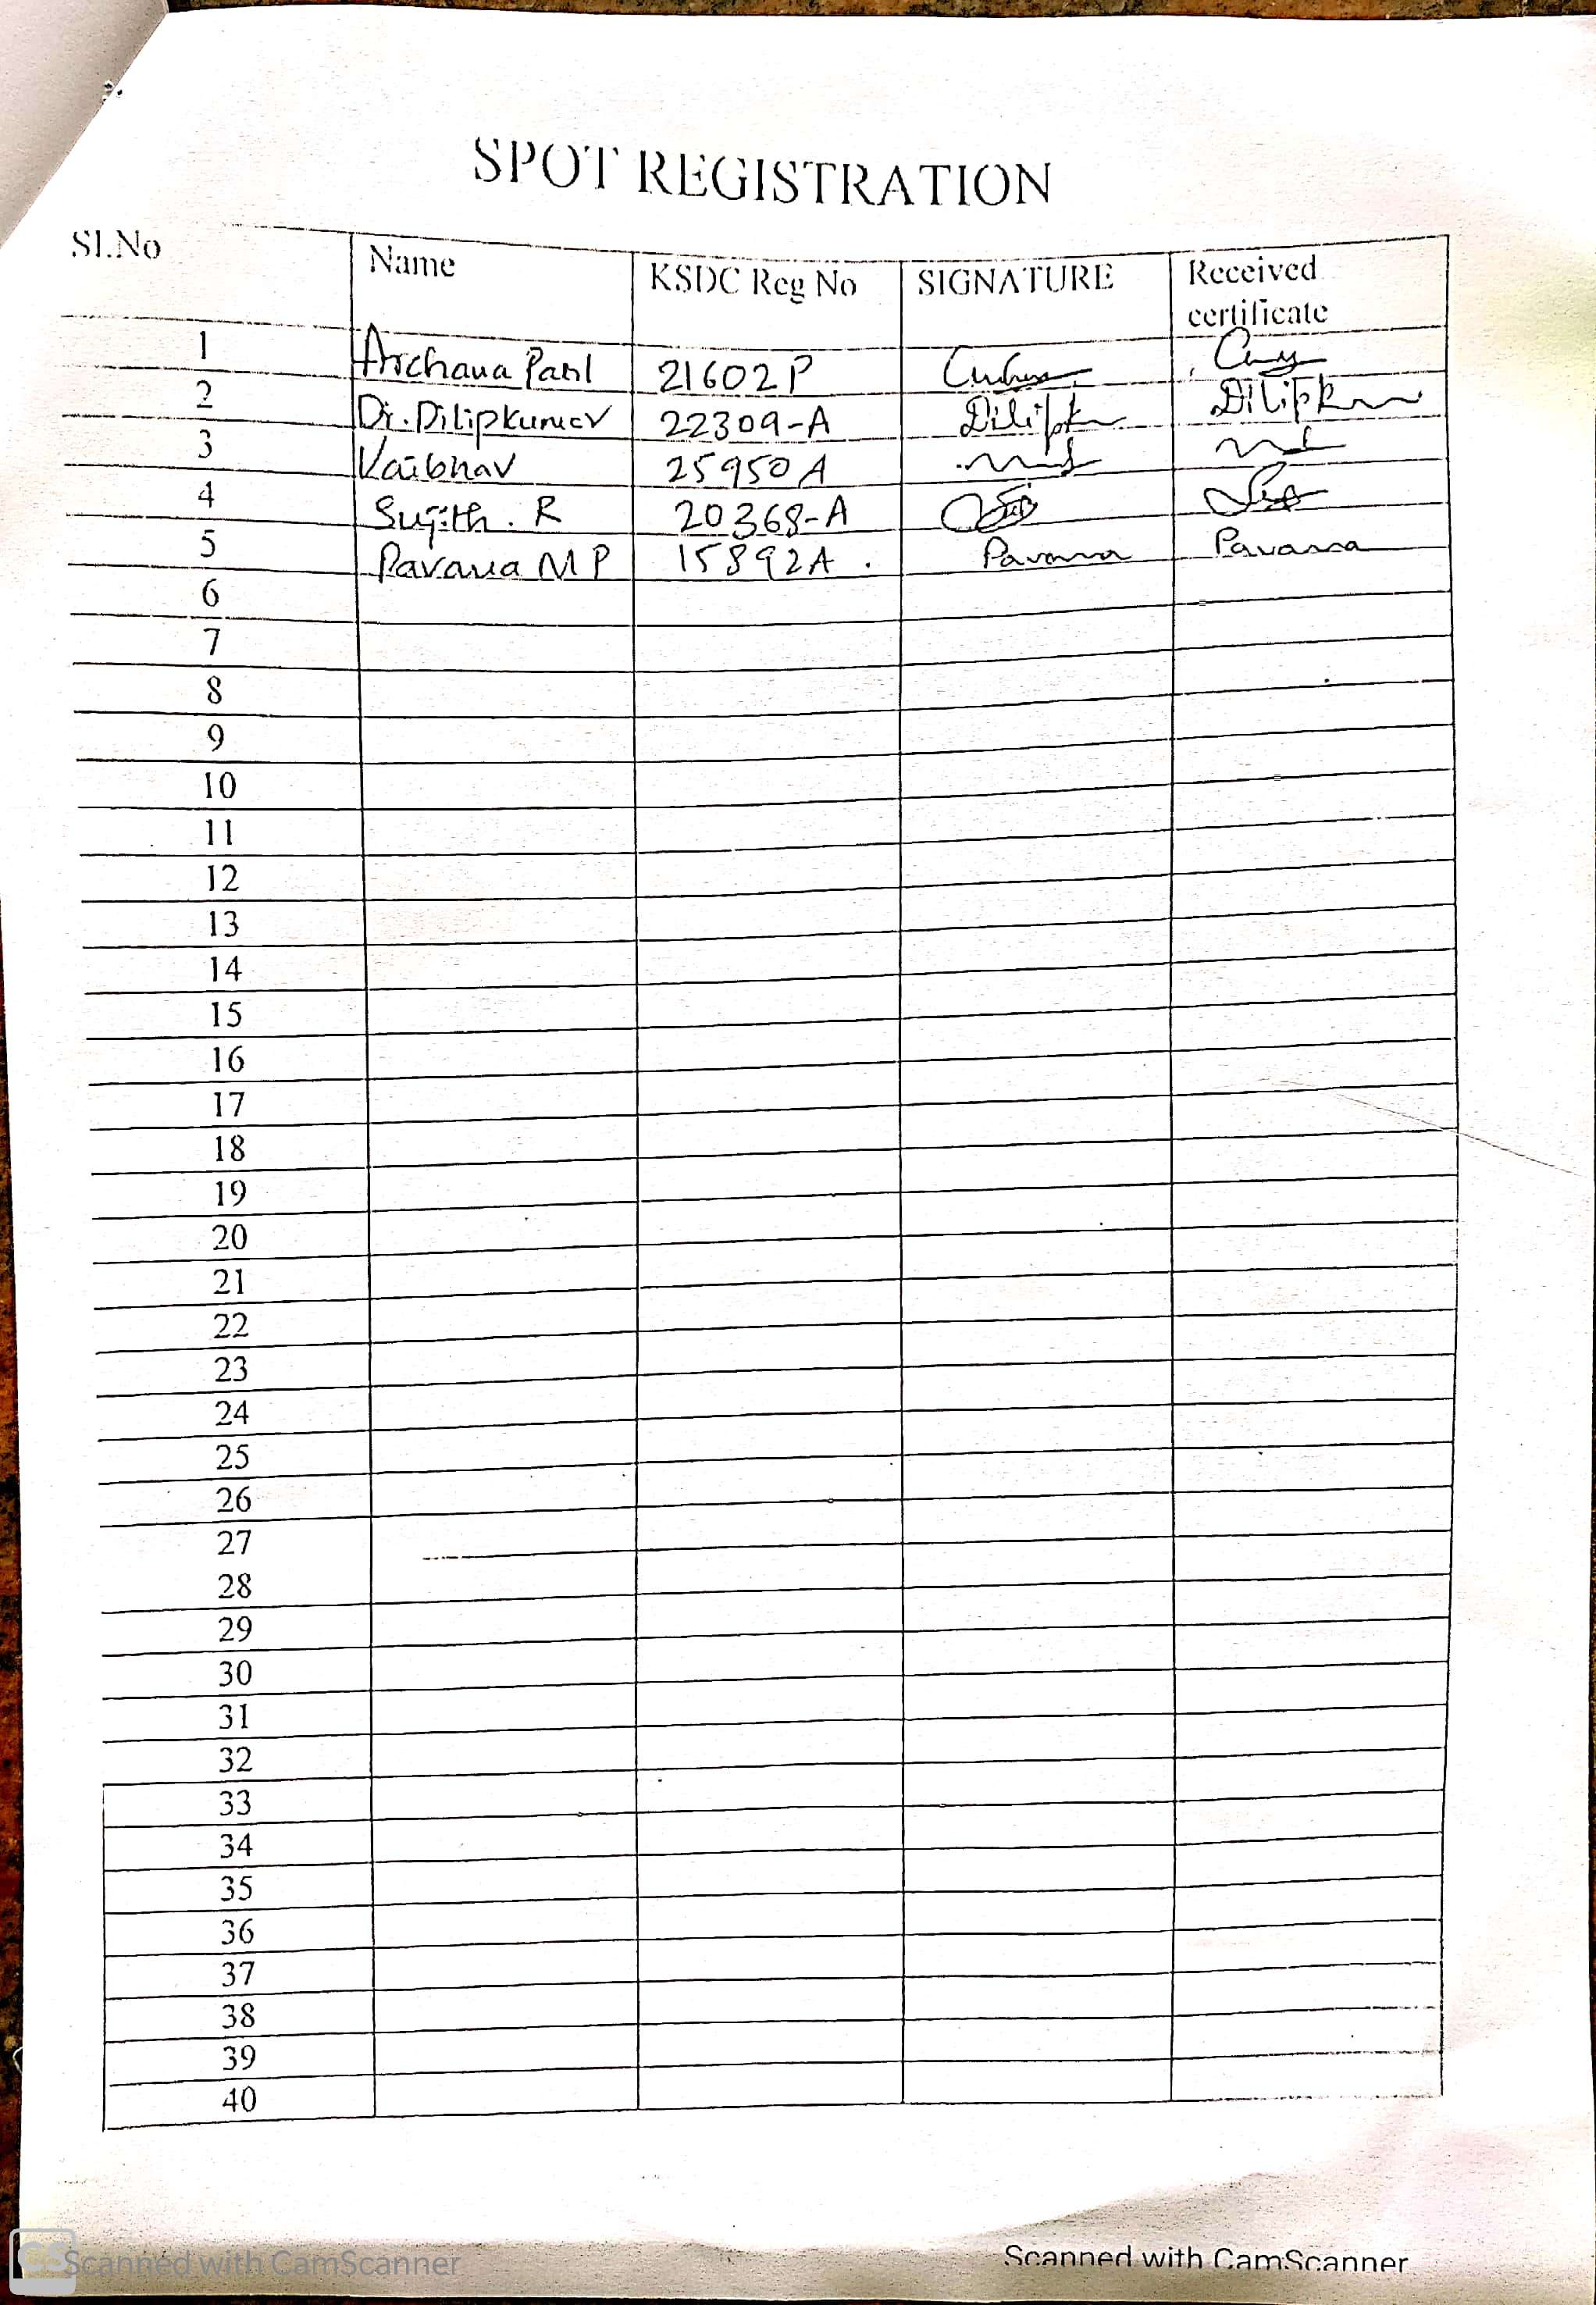 SPOT REGISTRATION
Sl.No Name KSDC Reg No SIGNATURE Received certificate
1 Archana Patil 21602P
2 Dr. Dilipkumar 22309-A Dilipk Dilipk
3 Vaibhav 25950A
4 Sujith. R 20368-A
5 Pavana M P 15892A. Pavana Pavana
6
7
8
9
10
11
12
13
14
15
16
17
18
19
20
21
22
23
24
25
26
27
28
29
30
31
32
33
34
35
36
37
38
39
40
CS Scanned with CamScanner
Scanned with CamScanner